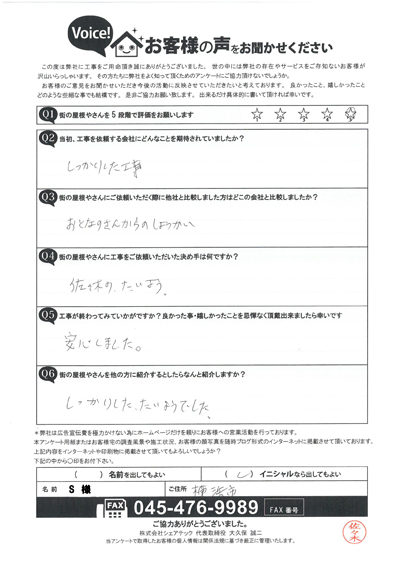 Voice!
お客様の声をお聞かせください
この度は弊社に工事をご用命頂き誠にありがとうございました。世の中には弊社の存在やサービスをご存知ないお客様が
沢山いらっしゃいます。その方たちに弊社をよく知って頂くためのアンケートにご協力頂けないでしょうか。
お客様のご意見をお聞かせいただき今後の活動に反映させていただきたいと考えております。良かったこと、嬉しかったこと
どのような些細な事でも結構です。是非ご協力お願い致します。出来るだけ具体的に書いて頂ければ幸いです。
Q1 街の屋根やさんを5段階で評価をお願いします ☆ ☆ ☆ ☆ ☆
Q2 当初、工事を依頼する会社にどんなことを期待されていましたか?
しっかりした工事
Q3 街の屋根やさんにご依頼いただく際に他社と比較しました方はどこの会社と比較しましたか?
おとなりさんからのしょうかい
Q4 街の屋根やさんに工事をご依頼いただいた決め手は何ですか?
佐々木の、たいおう。
Q5 工事が終わってみていかがですか?良かった事・嬉しかったことを忌憚なく頂戴出来ましたら幸いです
安心しました。
Q6 街の屋根やさんを他の方に紹介するとしたらなんと紹介しますか?
しっかりした、たいおうでした。
*弊社は広告宣伝費を極力かけない為にホームページだけを頼りにお客様への営業活動を行っております。
本アンケート用紙またはお客様宅の調査風景や施工状況、お客様の顔写真を随時ブログ形式のインターネットに掲載させて頂いております。
上記内容をインターネットや印刷物に掲載させて頂いてもよろしいでしょうか?
下記の中から〇印をお付け下さい。
( ) 名前を出してもよい ( ) イニシャルなら出してもよい
名前 S 様 ご住所
FAX 045-476-9989 FAX 番号
ご協力ありがとうございました。
株式会社シェアテック 代表取締役 大久保 誠二
当アンケートで取得したお客様の個人情報は関係法規に基づき厳正に管理いたします。
佐々木